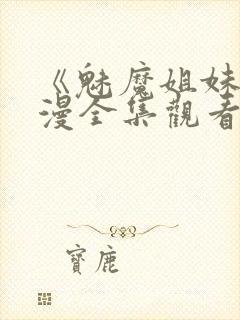 《魅魔姐妹
漫全集觀看
寶鹿